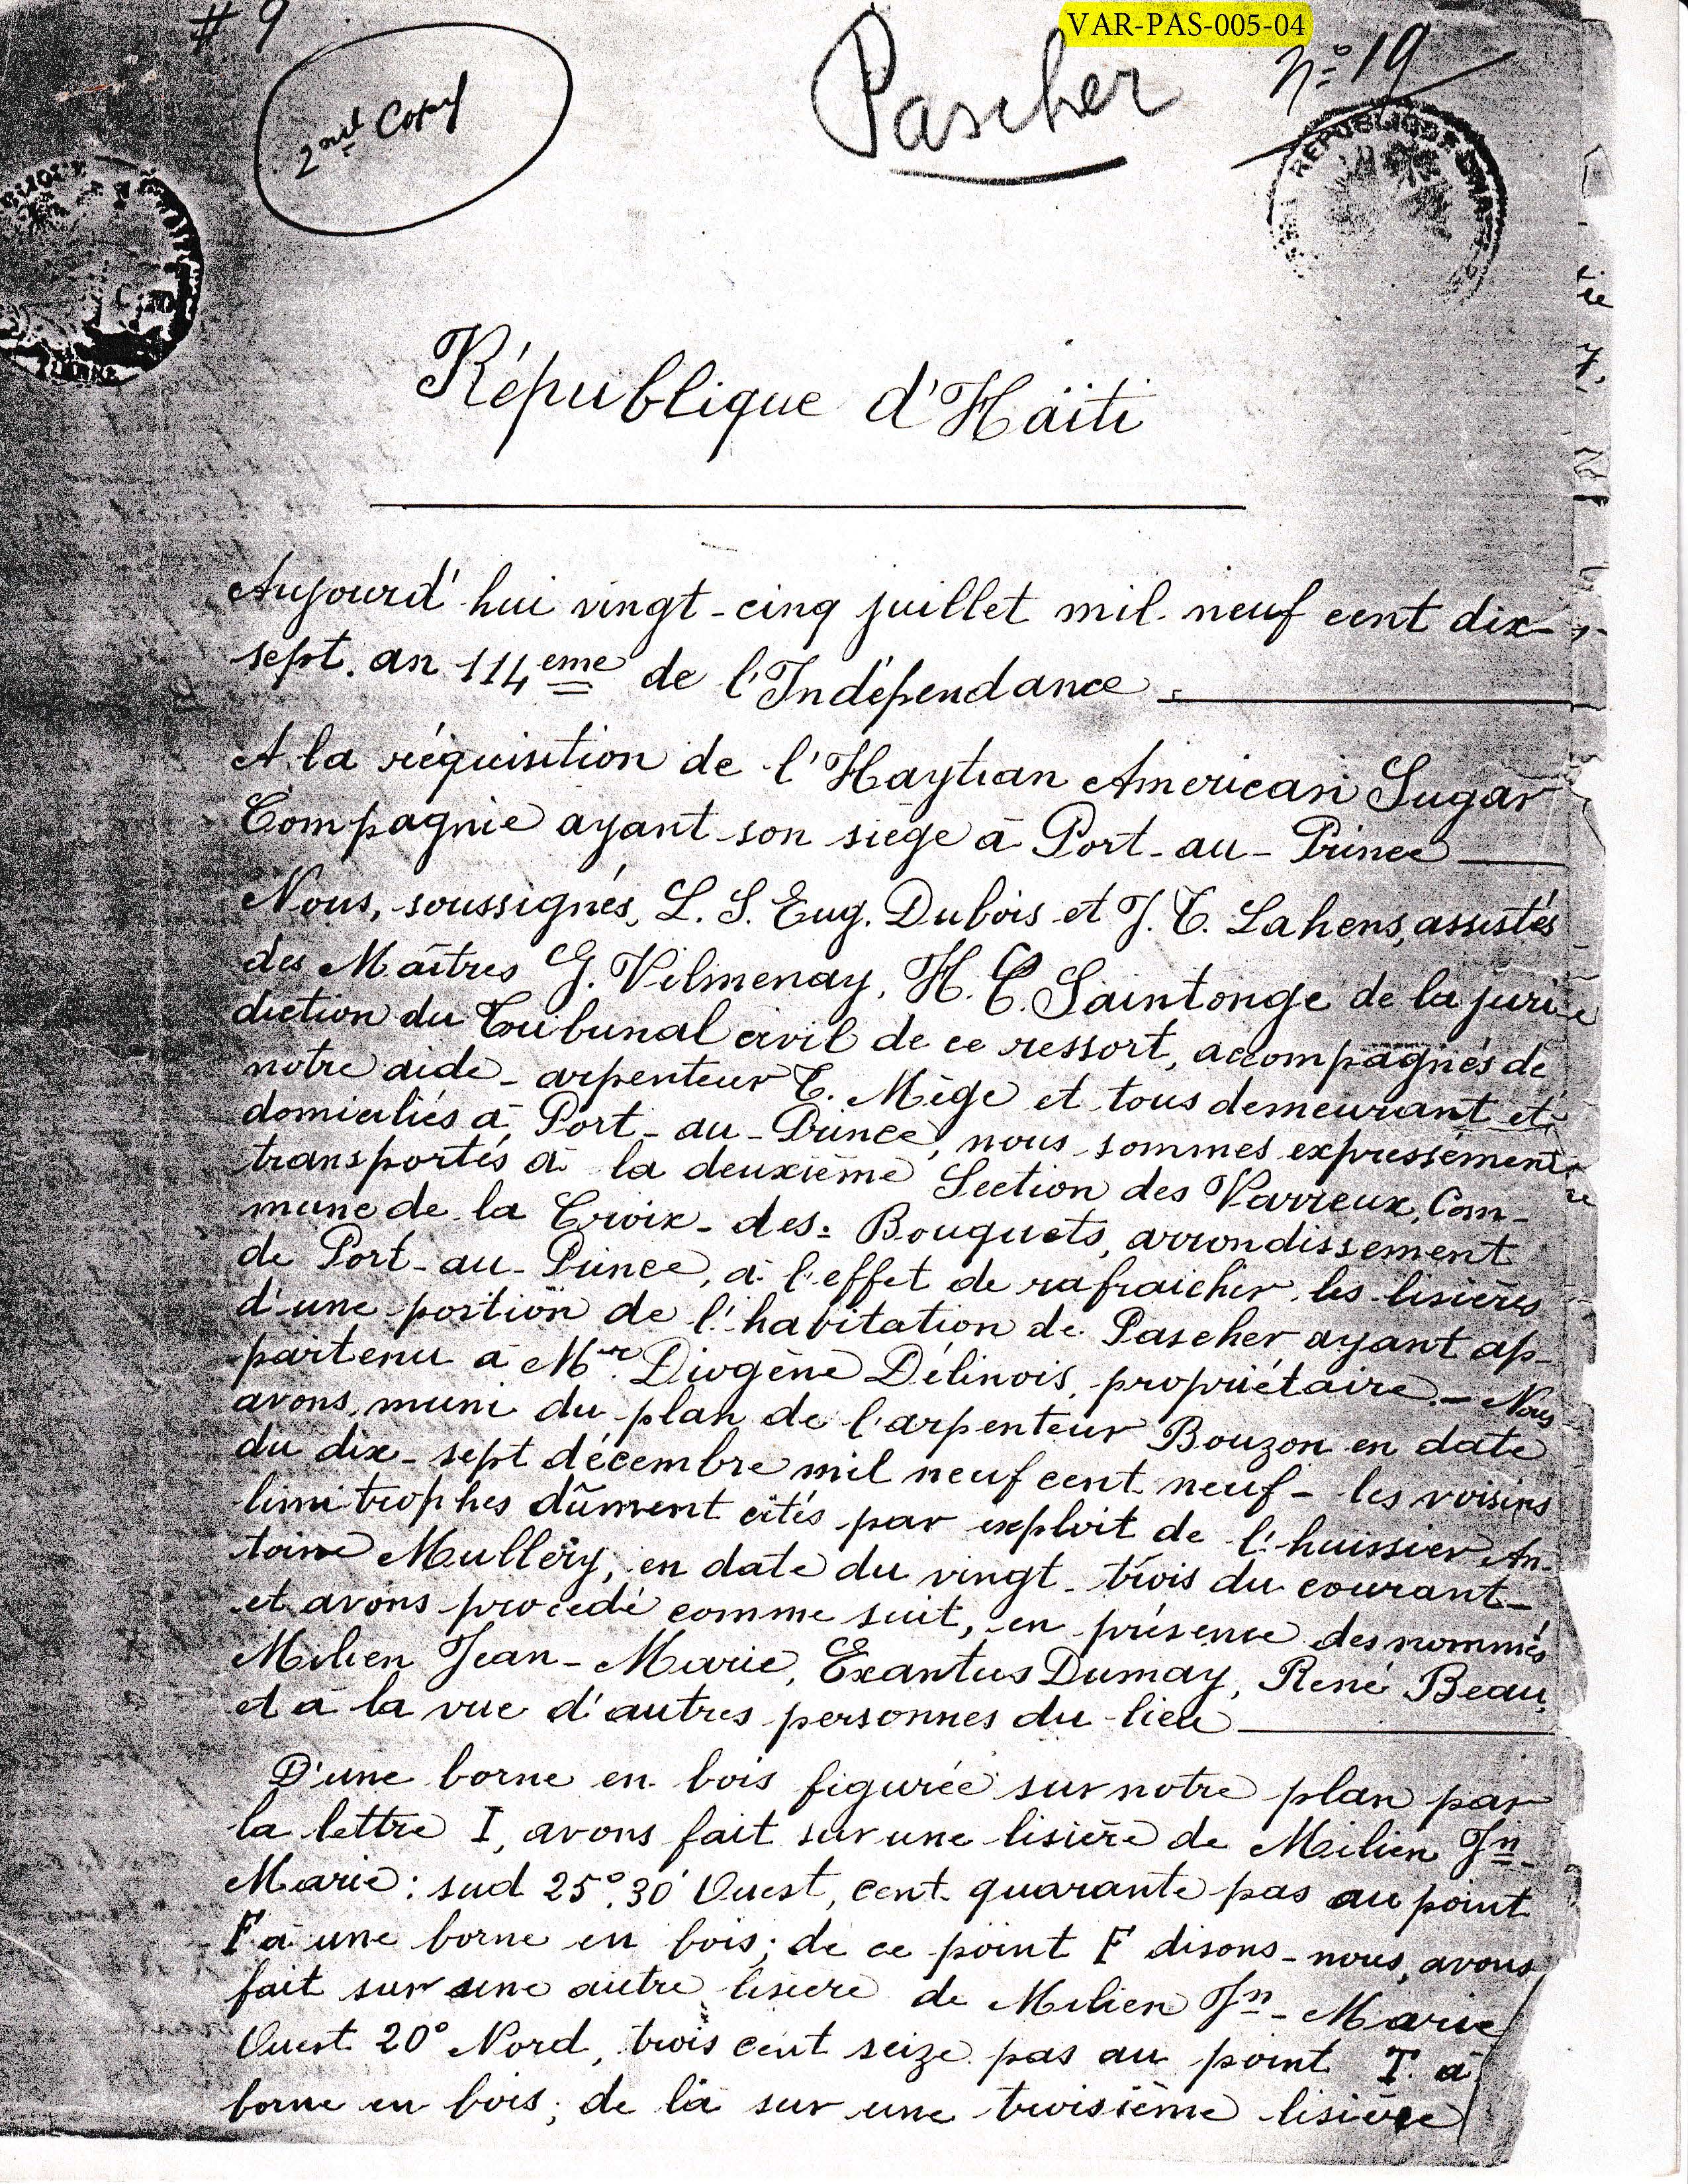 # 9
VAR-PAS-005-04
2nd Copy
Pascher
No 19
REPUBLIQUE D'HAITI
TIMBRE
République d'Haïti
Aujourd'hui vingt-cinq juillet mil neuf cent dix-
sept. an 114eme de l'Indépendance.
A la réquisition de l'Haytian American Sugar
Compagnie ayant son siège à Port-au-Prince
Nous, soussignés, L. S. Eug. Dubois et J. T. Lahens, assistés
des Maîtres G. Vilmenay, H. C. Saintonge de la juri
diction du Tribunal civil de ce ressort, accompagnés de
notre aide-arpenteur T. Mège et tous demeurant et
domiciliés à Port-au-Prince, nous sommes expressément
transportés à la deuxième Section des Varreux, Com-
mune de la Croix-des-Bouquets, arrondissement
de Port-au-Prince, à l'effet de rafraicher les lisières
d'une portion de l'habitation de Pascher ayant ap-
partenu à Mr. Diogène Délinois, propriétaire. - Nous
avons, muni du plan de l'arpenteur Bouzon en date
du dix-sept décembre mil neuf cent neuf - les voisins
limitrophes dûment cités par exploit de l'huissier An-
toine Mullery, en date du vingt-trois du courant-
et avons procédé comme suit, en présence des nommés
Milien Jean-Marie, Exantus Dumay, René Beau,
et à la vue d'autres personnes du lieu
D'une borne en bois figurée sur notre plan par
la lettre I, avons fait sur une lisière de Milien Jn-
Marie: sud 25°.30' Ouest, cent quarante pas au point
F à une borne en bois; de ce point F disons-nous, avons
fait sur une autre lisière de Milien Jn-Marie
Ouest 20° Nord, trois cent seize pas au point T. à
borne en bois; de là sur une troisième lisière